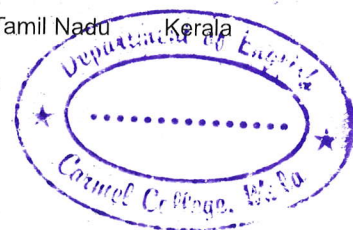 Tamil Nadu Kerala
Department of English
Carmel College, Mala